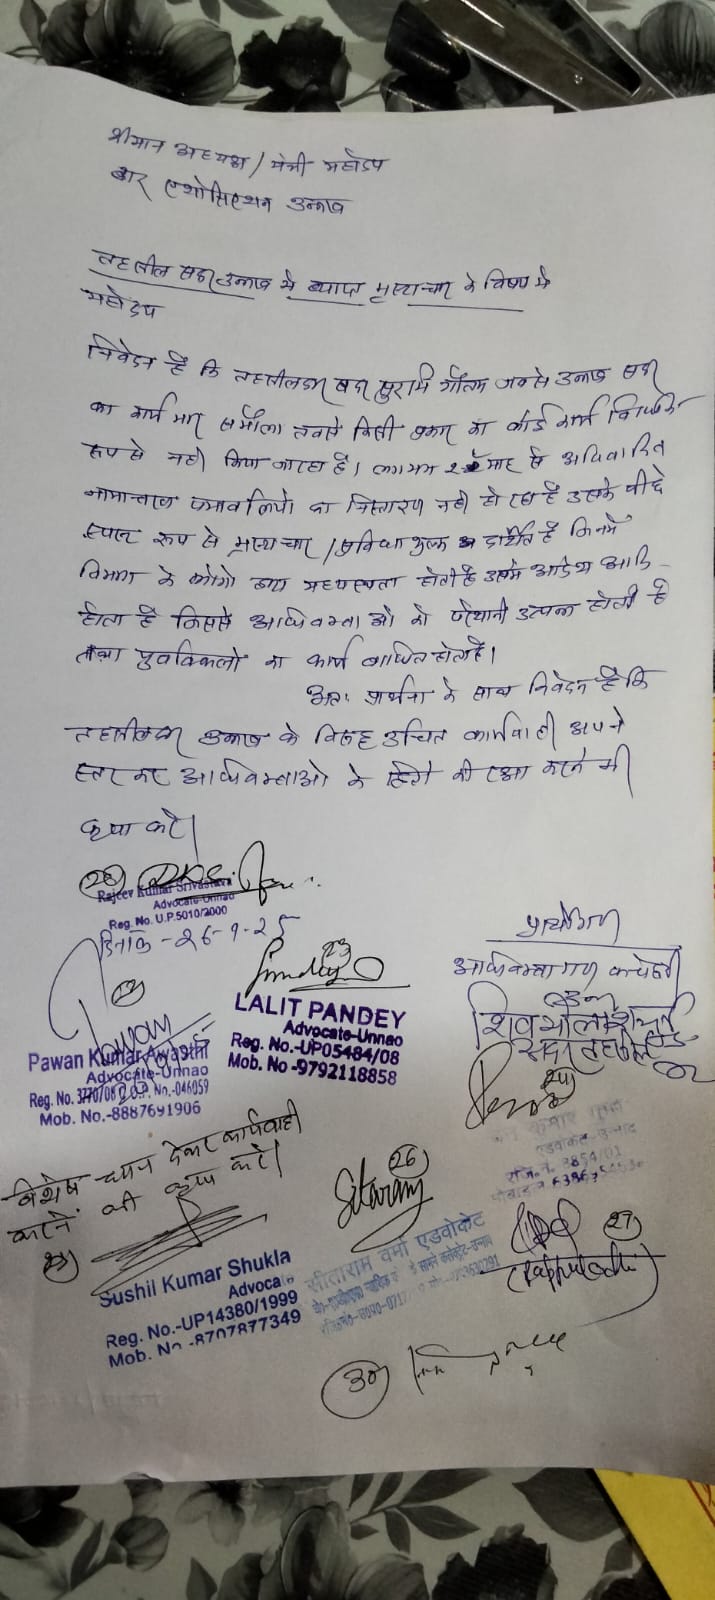 श्रीमान अध्यक्ष / मंत्री महोदय
बार एशोसिएशन उन्नाव
तहसील सदर उन्नाव मे व्याप्त भ्रष्टाचार के विषय मे
महोदय
निवेदन है कि तहसीलदार सदर गौतम जबसे उन्नाव सदर
का कार्य भार सभाँला तबसे किसी प्रकार का कोई कार्य विधिक
रूप से नही किया जा रहा है। लगभग माह से अविवादित
नामान्तरण पत्रावलियो का निस्तारण नही हो रहा है उसके पीछे
स्पष्ट रूप से भ्रष्टाचार / सुविधा शुल्क दर्शित है जिनमे
विभाग के लोगो द्वारा मध्यस्थता होती है उसमे आदेश आदि
होता है जिससे अधिवक्ताओ को परेशानी उत्पन्न होती है
तथा युवा वकीलो का कार्य बाधित होता है।
अतः प्रार्थना के साथ निवेदन है कि
तहसीलदार उन्नाव के विरूद्ध उचित कार्यवाही अपने
स्तर कर अधिवक्ताओ के हितो की रक्षा करने की
कृपा करे।
Rajeev Kumar Srivastava
Advocate-Unnao
Reg. No. U.P.5010/2000
दिनांक - 26-9-25
प्रार्थीगण
अधिवक्तागण कचेहरी
उन्नाव
23
LALIT PANDEY
Advocate-Unnao
Reg. No.-UP05484/08
Mob. No -9792118858
Pawan Kumar Awasthi
Advocate-Unnao
Reg. No. 3770/06 C.O.P. No.-046059
Mob. No.-8887691906
24
एडवोकेट-उन्नाव
रजि. नं. 3854/01
विशेष ध्यान देकर कार्यवाही
करने की कृपा करें।
26
Sitaram
सीताराम वर्मा एडवोकेट
27
Sushil Kumar Shukla
Advocate
Reg. No.-UP14380/1999
Mob. No -8707877349
30